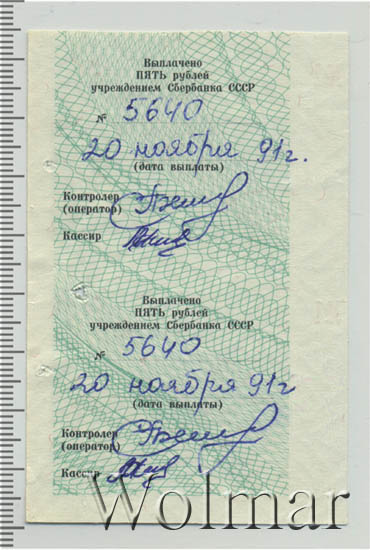 Выплачено
ПЯТЬ рублей
учреждением Сбербанка СССР
№ 5640
20 ноября 91г.
(дата выплаты)
Контролер
(оператор)
Кассир
Выплачено
ПЯТЬ рублей
учреждением Сбербанка СССР
№ 5640
20 ноября 91г
(дата выплаты)
Контролер
(оператор)
Кассир
Wolmar